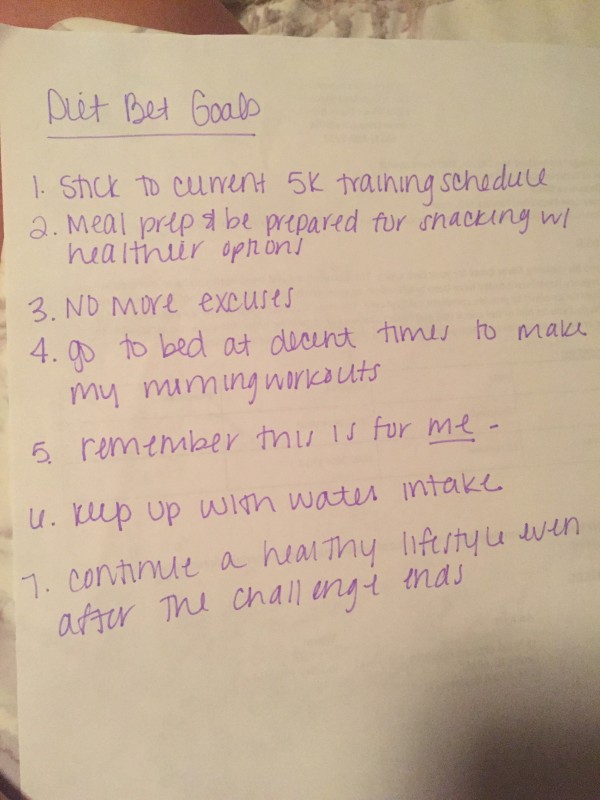 Diet Bet Goals
1. Stick to current 5K training schedule
2. Meal prep & be prepared for snacking w/
healthier options
3. NO More excuses
4. go to bed at decent times to make
my morning workouts
5. remember this is for me -
6. keep up with water intake
7. continue a healthy lifestyle even
after the challenge ends